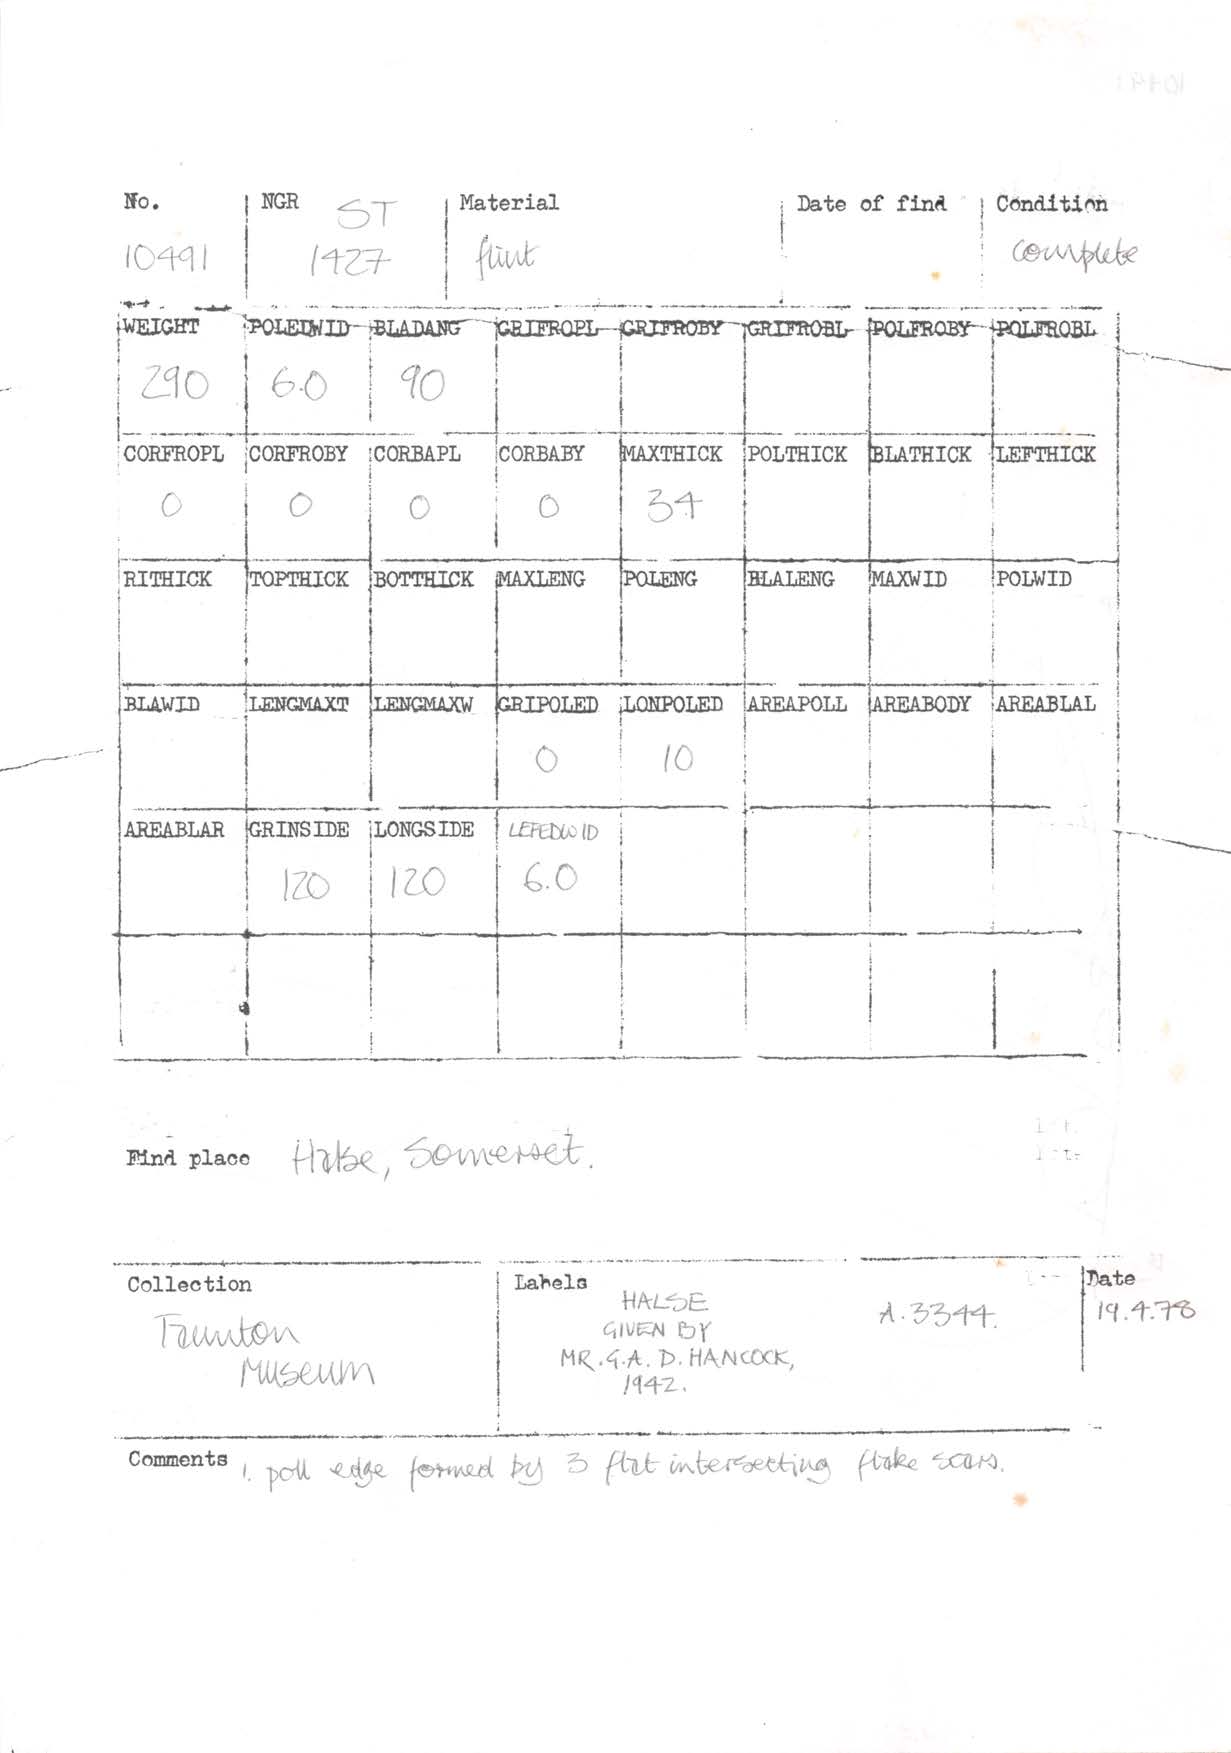 No. NGR ST Material Date of find Condition
10491 1427 flint complete
WEIGHT POLEDWID BLADANG GRIFROPL GRIFROBY GRIFROBL POLFROBY POLFROBL
290 6.0 90
CORFROPL CORFROBY CORBAPL CORBABY MAXTHICK POLTHICK BLATHICK LEFTHICK
0 0 0 0 34
RITHICK TOPTHICK BOTTHICK MAXLENG POLENG BLALENG MAXWID POLWID
BLAWID LENGMAXT LENGMAXW GRIPOLED LONPOLED AREAPOLL AREABODY AREABLAL
0 10
AREABLAR GRINSIDE LONGSIDE LEFEDWID
120 120 6.0
Find place Halse, Somerset.
Collection Labels Date
HALSE A.3344. 19.4.78
Taunton GIVEN BY
Museum MR. G.A.D. HANCOCK,
1942.
Comments 1. poll edge formed by 3 flat intersecting flake scars.